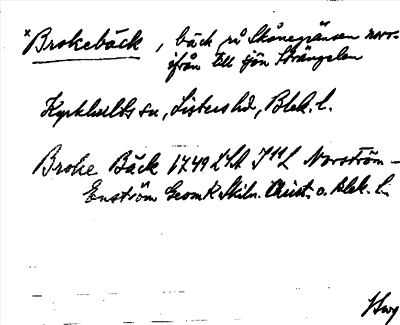 *Brokebäck, bäck på Skånegränsen norr-
ifrån till sjön Strängelen
Kyrkhults sn, Listers hd, Blek. l.
Broke Bäck 1749 LSA Norström-
Enström Geom K Skiln. Christ. o. Blek. l.